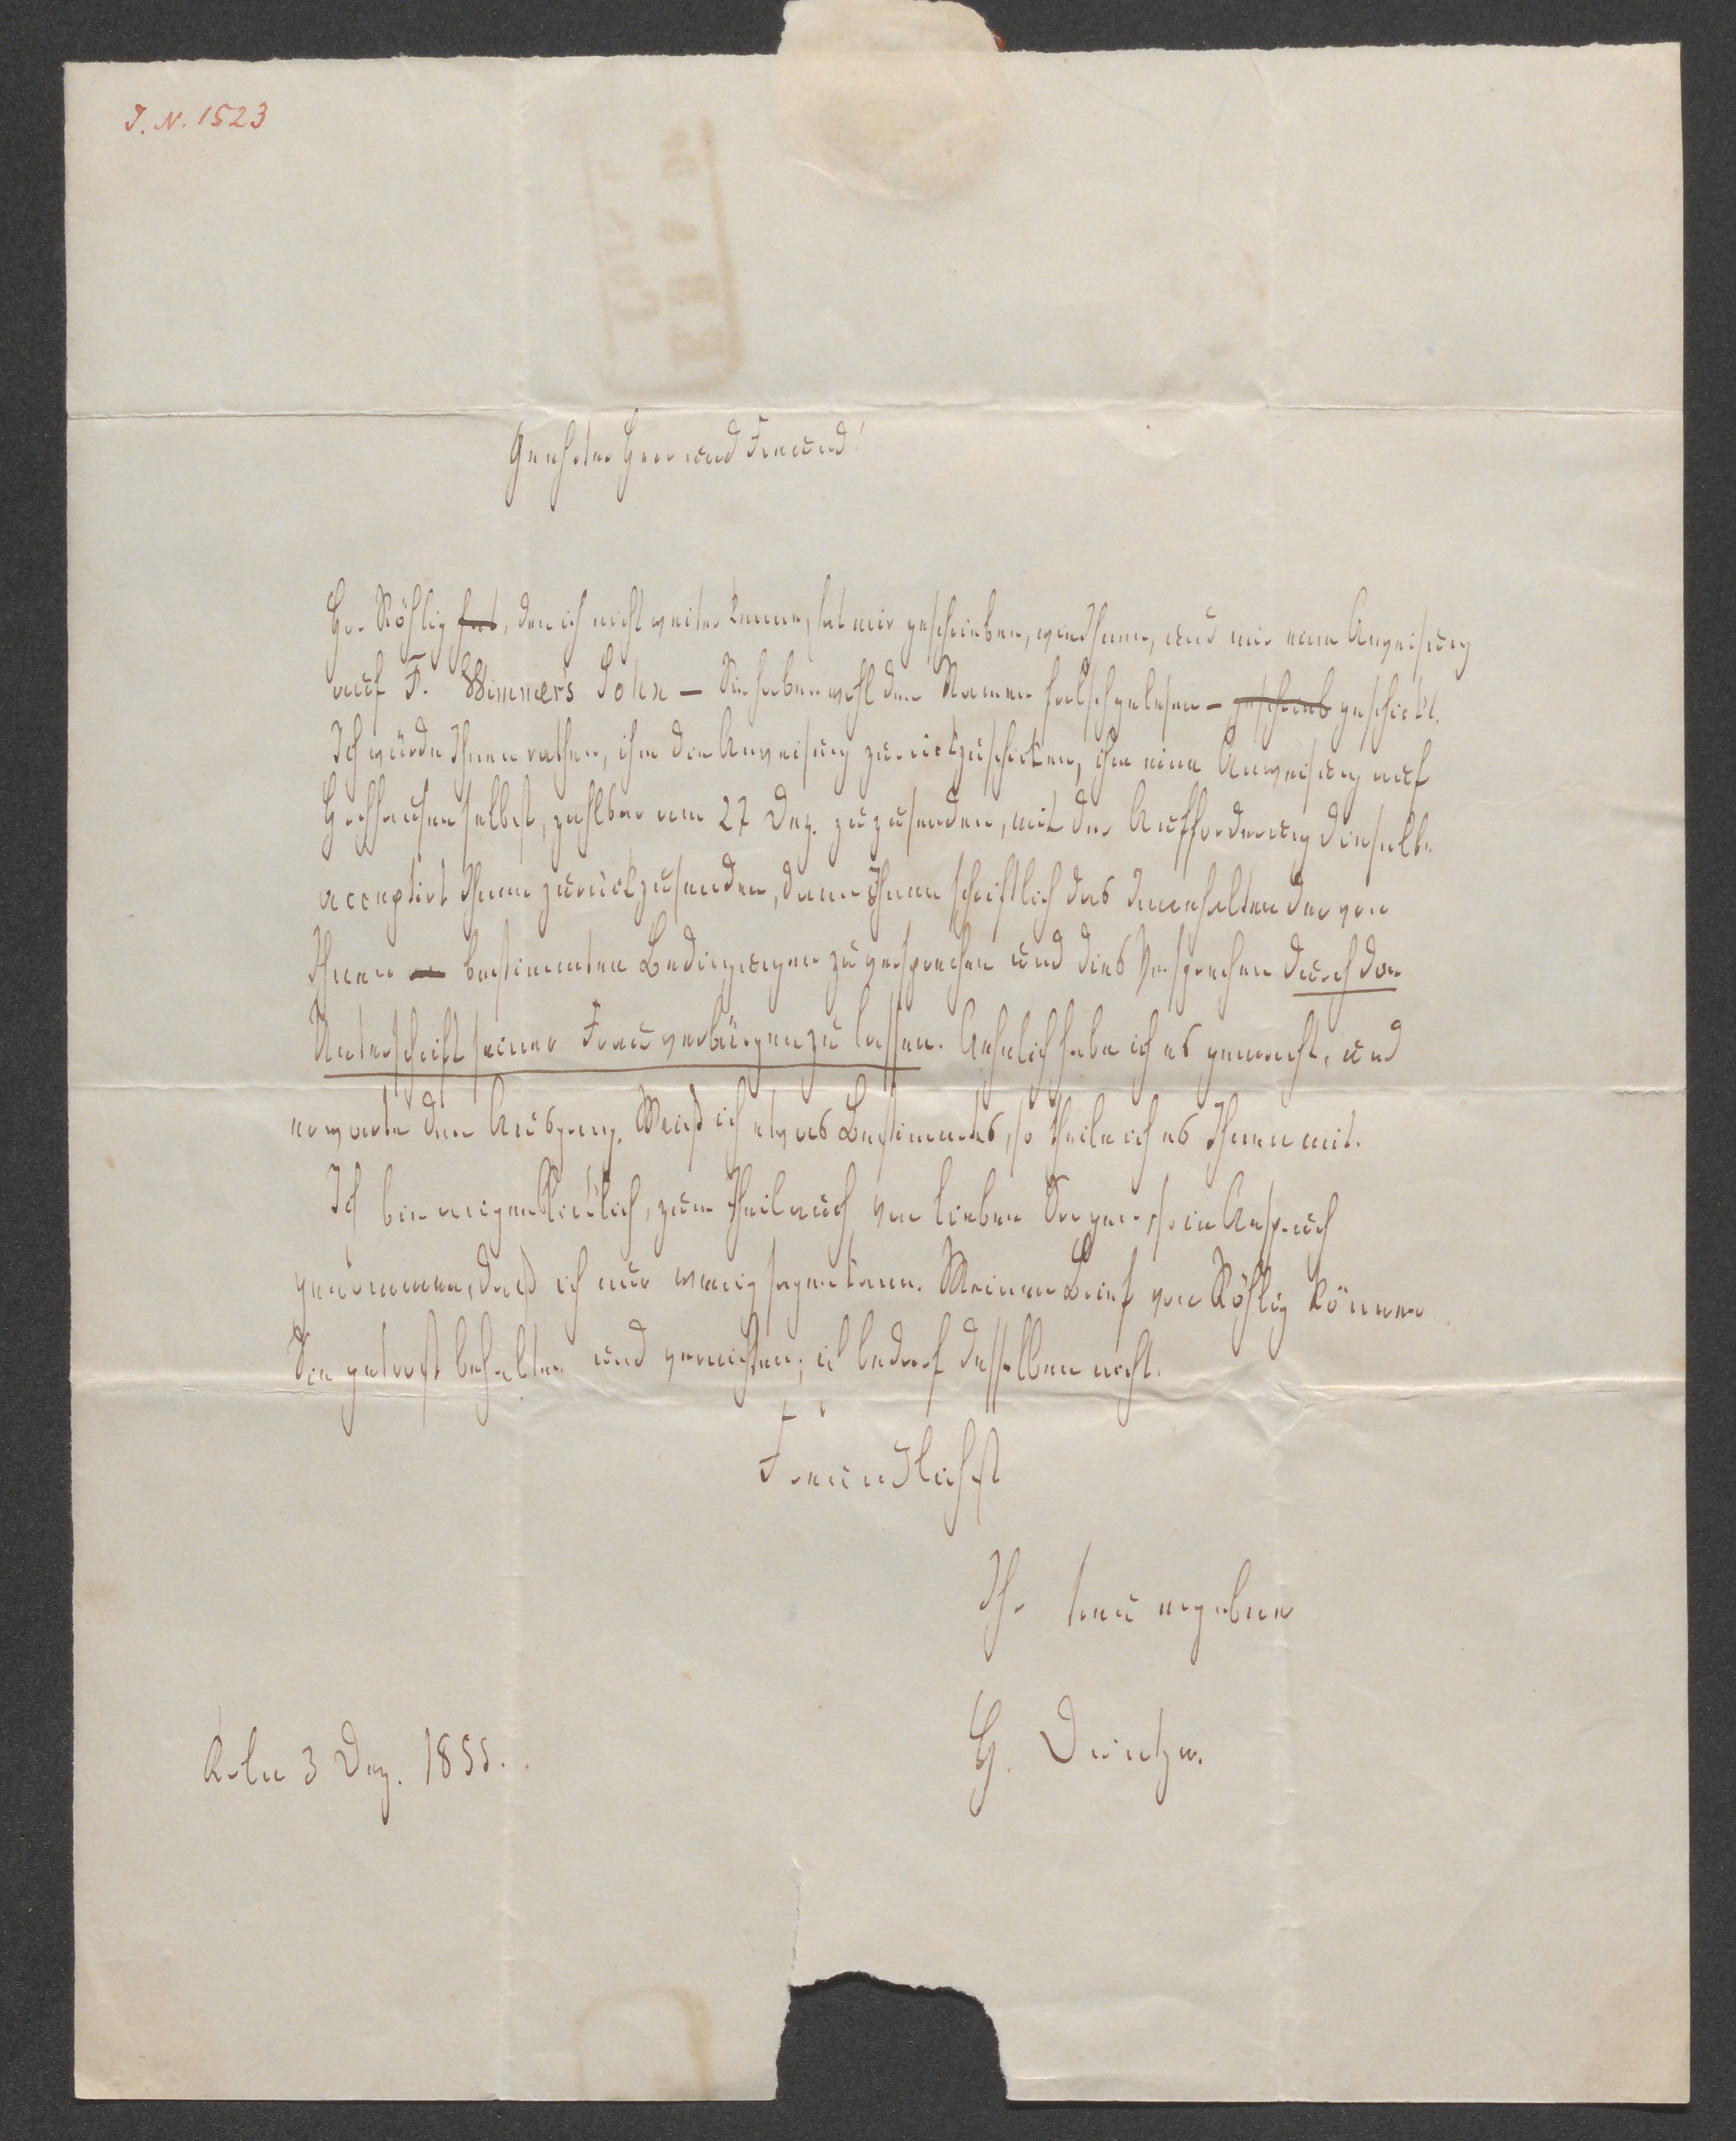 J. N. 1523
Geehrter Herr und Freund!
Hr. Röhlig hat, den ich nicht weiter kenne, hat mir geschrieben, wie Ihnen, und mir eine Anweisung
auf F. Wimmer's Sohn – Sie haben wohl den Namen falsch gelesen – geschickt.
Ich würde Ihnen rathen, ihm die Anweisung zurückzuschicken, ihm eine Anweisung auf
selbst, zahlbar am 27 Dez. zuzusenden, mit der Aufforderung dieselbe
acceptirt Ihnen zurückzusenden, dann Ihnen schriftlich das Innehalten der von
Ihnen bestimmten Bedingungen zu versprechen und dies Versprechen durch die
Unterschrift seiner Frau verbürgen zu lassen. Aehnlich habe ich es gemacht, und
erwarte den Ausgang. Weiß ich etwas Bestimmtes, so theile ich es Ihnen mit.
Ich bin augenblicklich, zum Theil auch von lieben Sorgen, so in Anspruch
genommen, daß ich nur wenig sagen kann. Meinen Brief von Röhlig können
Sie getrost behalten und vernichten; ich bedarf desselben nicht.
Freundlichst
Ihr treu ergebener
H. Düntzer.
Köln 3 Dez. 1855.